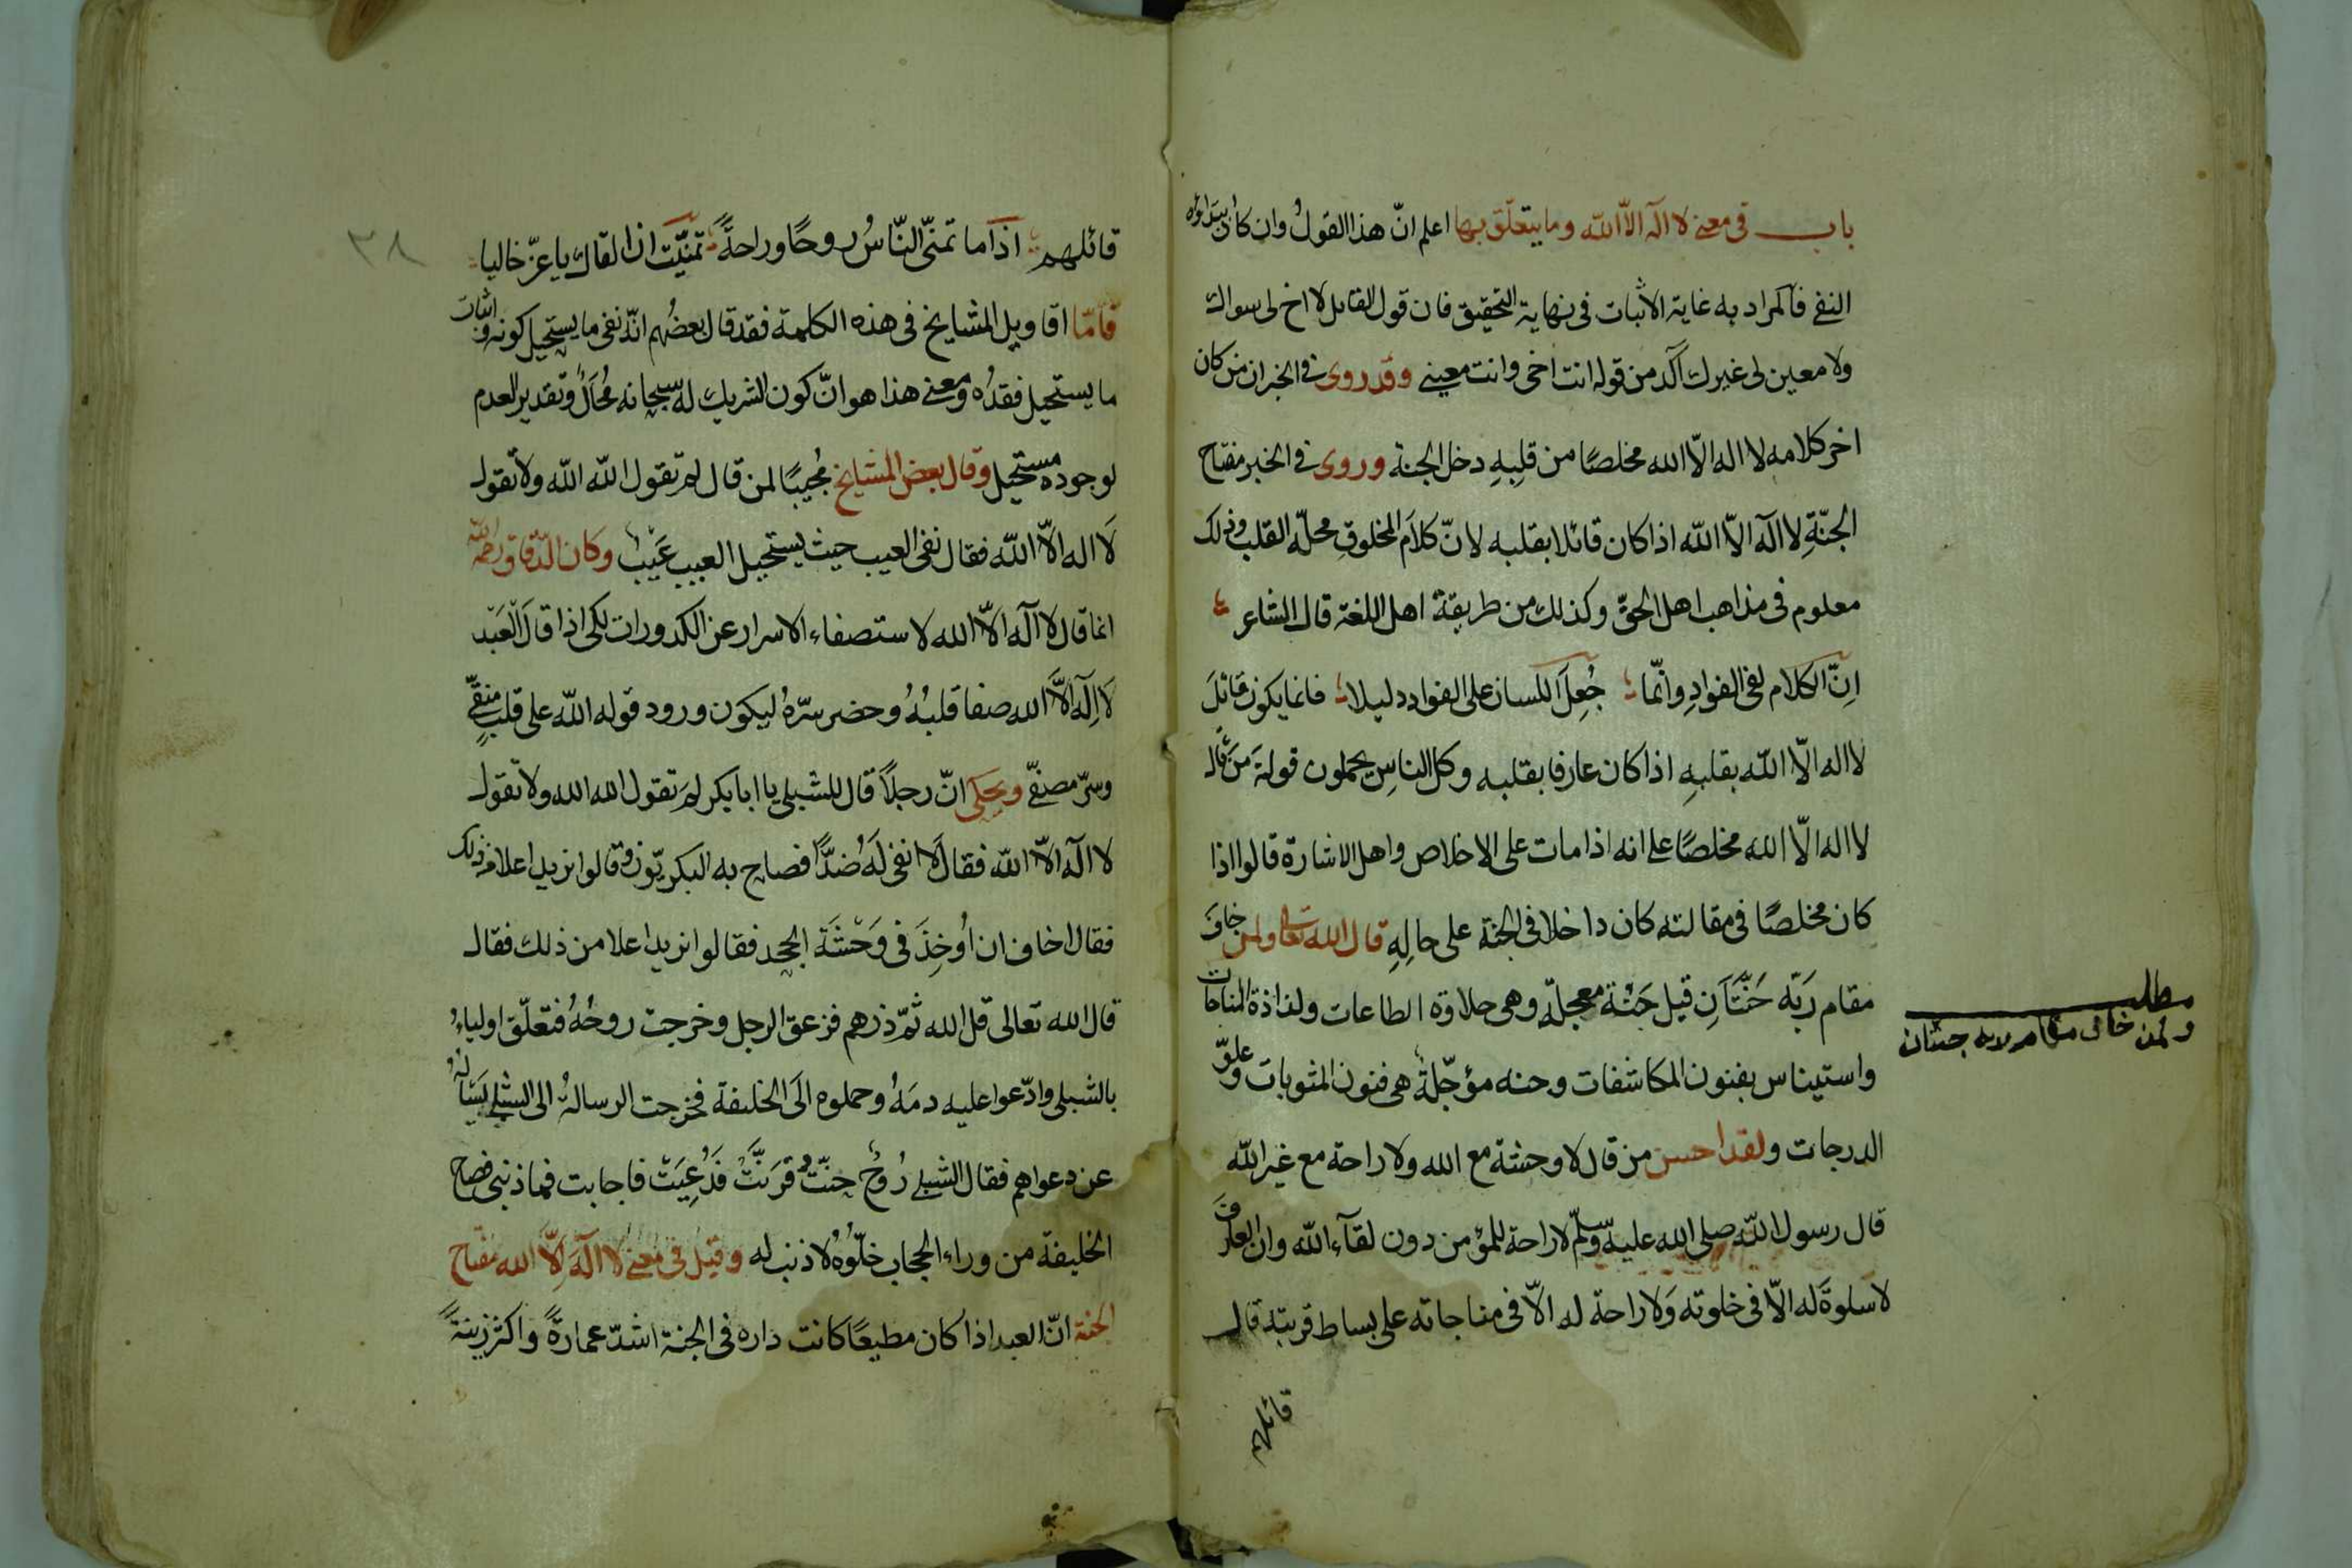 باب في معنى لا اله الا الله وما يتعلق بها اعلم انّ هذا القول وان كان ابتداؤه
النفي فالمراد به غاية الاثبات في نهاية التحقيق فان قول القايل لا اخ لي سواك
ولا معين لي غيرك آكد من قوله انت اخي وانت معيني وقد روى في الخبر ان من كان
اخر كلامه لا اله الّا الله مخلصًا من قلبِهِ دخل الجنة وروى في الخبر مفتاح
الجنّةِ لا اله الّا الله اذا كان قائلا بقلبه لانّ كلامَ المخلوقِ محلّه القلب وذلك
معلوم في مذاهب اهل الحقّ وكذلك من طريقة اهل اللغة قال الشاعر
اِنّ الكلام لفي الفوادِ وانّما جُعِلَ اللسان على الفواد دليلا فانما يكون قائلَ
لا اله الّا الله بقلبهِ اذا كان عارفا بقلبه وكل الناسِ يحملون قولهَ مَن قال
لا اله الّا الله مخلصًا على انه اذا مات على الاخلاص واهل الاشارة قالوا اذا
كان مخلصًا في مقالته كان داخلا في الجنة على حالِهِ قال الله تعالى ولمن خافَ
مقام ربّه جَنّتَانِ قيل جَنّة معجلّة وهى حلاوة الطاعات ولذاذة المناجات
واستيناس بفنون المكاشفات وجنه مؤجّلةٌ هى فنون المثوبات وعلوّ
الدرجات ولقد احسن من قال لا وحشة مع الله ولا راحة مع غير الله
قال رسول الله صلى الله عليه وسلّم لا راحة للمؤمن دون لقآء الله وان العارف
لا سلوةَ له الّا في خلوته وَلا راحة له الّا في مناجاته على بساط قربته قال
قائلهم
مطلب
ولمن خاف مقام ربه جنتان
٣٨
قائلهم اذا ما تمنّى النّاسُ روحًا وراحةً تمنّيت ان القاك يا عزّ خاليا
فامّا اقاويل المشايخ في هذه الكلمة فقد قال بعضُهم انّه نفى ما يستحيل كونه واثبات
ما يستحيل فقدُه ومعنى هذا هو انّ كون الشريك له سبحانه مُحَالٌ وتقدير العدم
لوجوده مستحيل وقال بعض المشايخ مُجيبًا لمن قال لم تقول الله الله ولا تقول
لَا اله الّا الله فقال نفى العيب حيث يستحيل العيب عَيْبٌ وكان الدّقاق رحمه الله
انما قال لا اله الّا الله لاستصفاء الاسرار عن الكدورات لكى اذا قالَ العَبْد
لَا اِلَه الَّا الله صفا قلبُهُ وحضر سرّهُ ليكوَن ورود قوله الله على قلبٍ منقّي
وسرّ مصفّي ويحكى انّ رجلًا قال للشبلى يا ابا بكر لِمَ تقول الله الله ولا تقول
لا اله الّا الله فقال لَا انفى لَهُ ضدًّا فصاح به البكريّون وقالوا نريد اعلا من ذلك
فقال اخاف ان اُوخِذَ فى وَحْشَة الجحد فقالوا نريد اعلا من ذلك فقال
قال الله تعالى قل الله ثمّ ذرهم فزعق الرجل وخرجت روحُهُ فتعلّق اولياءُ
بالشبلى وادّعوا عليه دمَهُ وحملوه الَى الخليفة فخرجت الرسالةُ الى الشبلى يَسْالُه
عن دعواهم فقال الشبلى رُوحٌ حنّتْ فرَنَّتْ فَدُعِيَتْ فاجابت فما ذنبى فصاح
الخليفة من وراء الحجاب خلّوُهُ لا ذنب له وقيل في معنى لا الهَ اِلّا الله مفتاح
الجنة انّ العبد اذا كان مطيعًا كانت داره فى الجنة اشدّ عمارةً واكثر زينةً